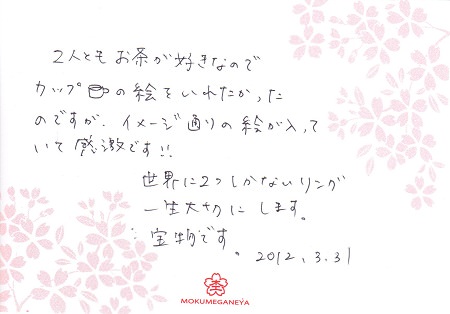 2人とも お茶が好きなので
カップ の絵をいれたかった
のですが、イメージ通りの絵が入って
いて感激です!!
世界に2つしかないリング
一生大切にします。
宝物です。
2012.3.31
MOKUMEGANEYA